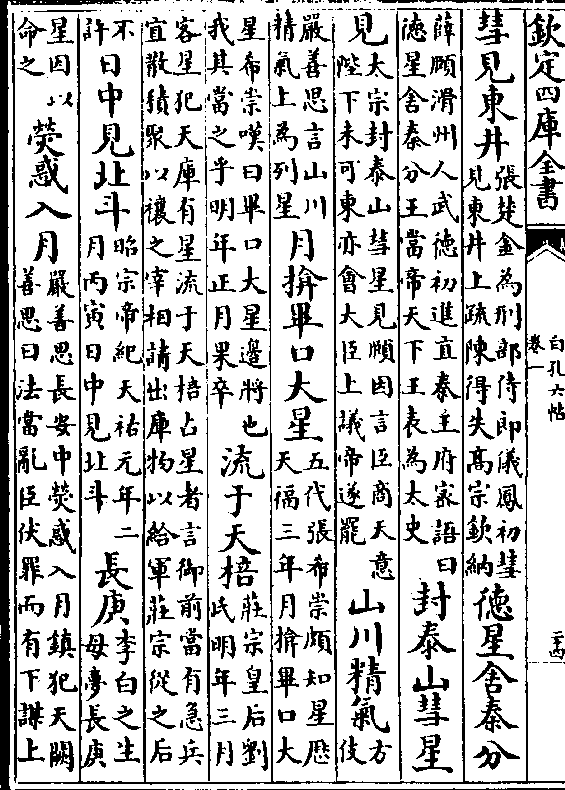 欽定四庫全書
白孔六帖
卷一
二十四
彗見東井張楚金為刑部侍郎儀鳳初彗見東井上疏陳得失髙宗欽納徳星舍秦分
薛頥滑州人武徳初進直秦王府家語曰徳星舍秦分王當帝天下王表為太史封泰山彗星
見太宗封泰山彗星見頥因言臣商天意陛下未可東亦會大臣上議帝遂罷山川精氣方伎
嚴善思言山川精氣上為列星月揜畢口大星五代張希崇頗知星厯天福三年月揜畢口大
星希崇嘆曰畢口大星邊將也我其當之乎明年正月果卒流于天棓莊宗皇后劉氏明年三月
客星犯天庫有星流于天棓占星者言御前當有急兵宜散積聚以禳之宰相請出庫物以給軍莊宗從之后
不許日中見北斗昭宗帝紀天祐元年二月丙寅日中見北斗長庚李白之生母夢長庚
星因以命之熒惑入月嚴善思長安中熒惑入月鎮犯天闕善思曰法當亂臣伏罪而有下謀上